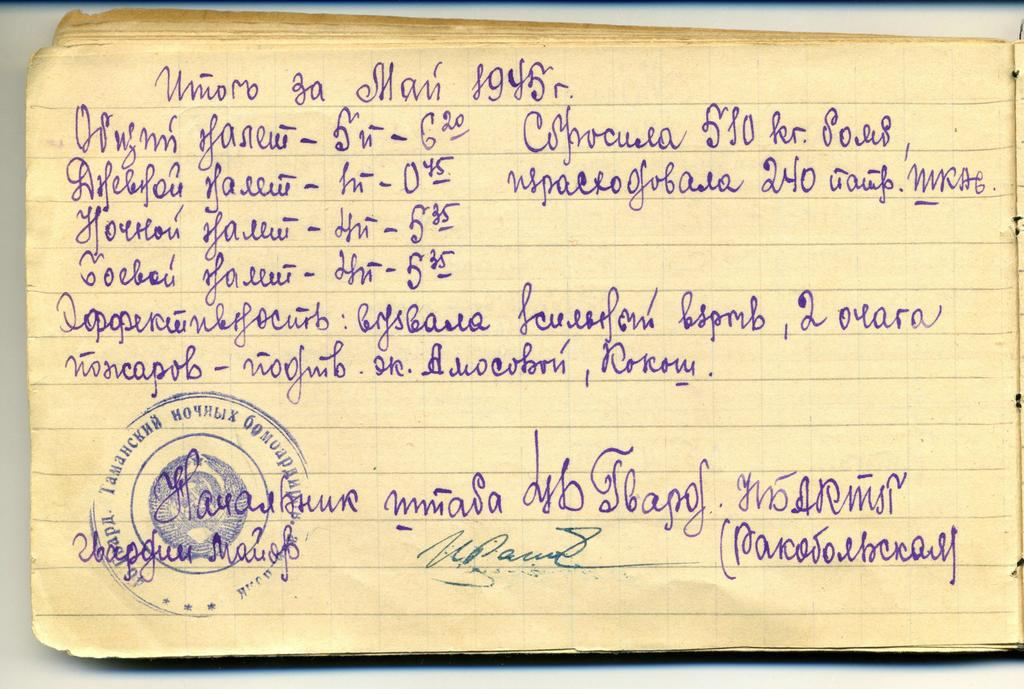 Итого за Май 1945г.
Общий налет – 5п – 6 20
Дневной налет – 1п – 0 45
Ночной налет – 4п – 5 35
Боевой налет – 4п – 5 35
Сбросила 510 кг. бомб,
израсходовала 240 патр. ШКАС.
Эффективность: вызвала 1сильный взрыв, 2 очага
пожаров – подтв. эк. Амосовой, Кокош.
Таманский ночных бомбардир
Начальник штаба 46 Гвард. НБАКТП
гвардии Майор
(Ракобольская)